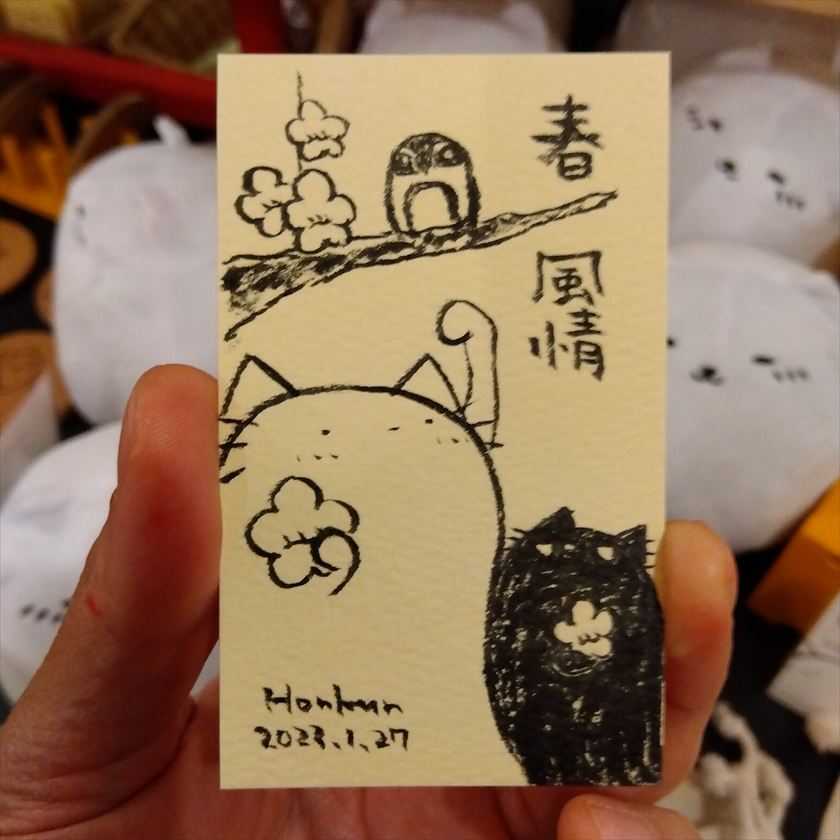 春
風情
Honkun
2023.1.27